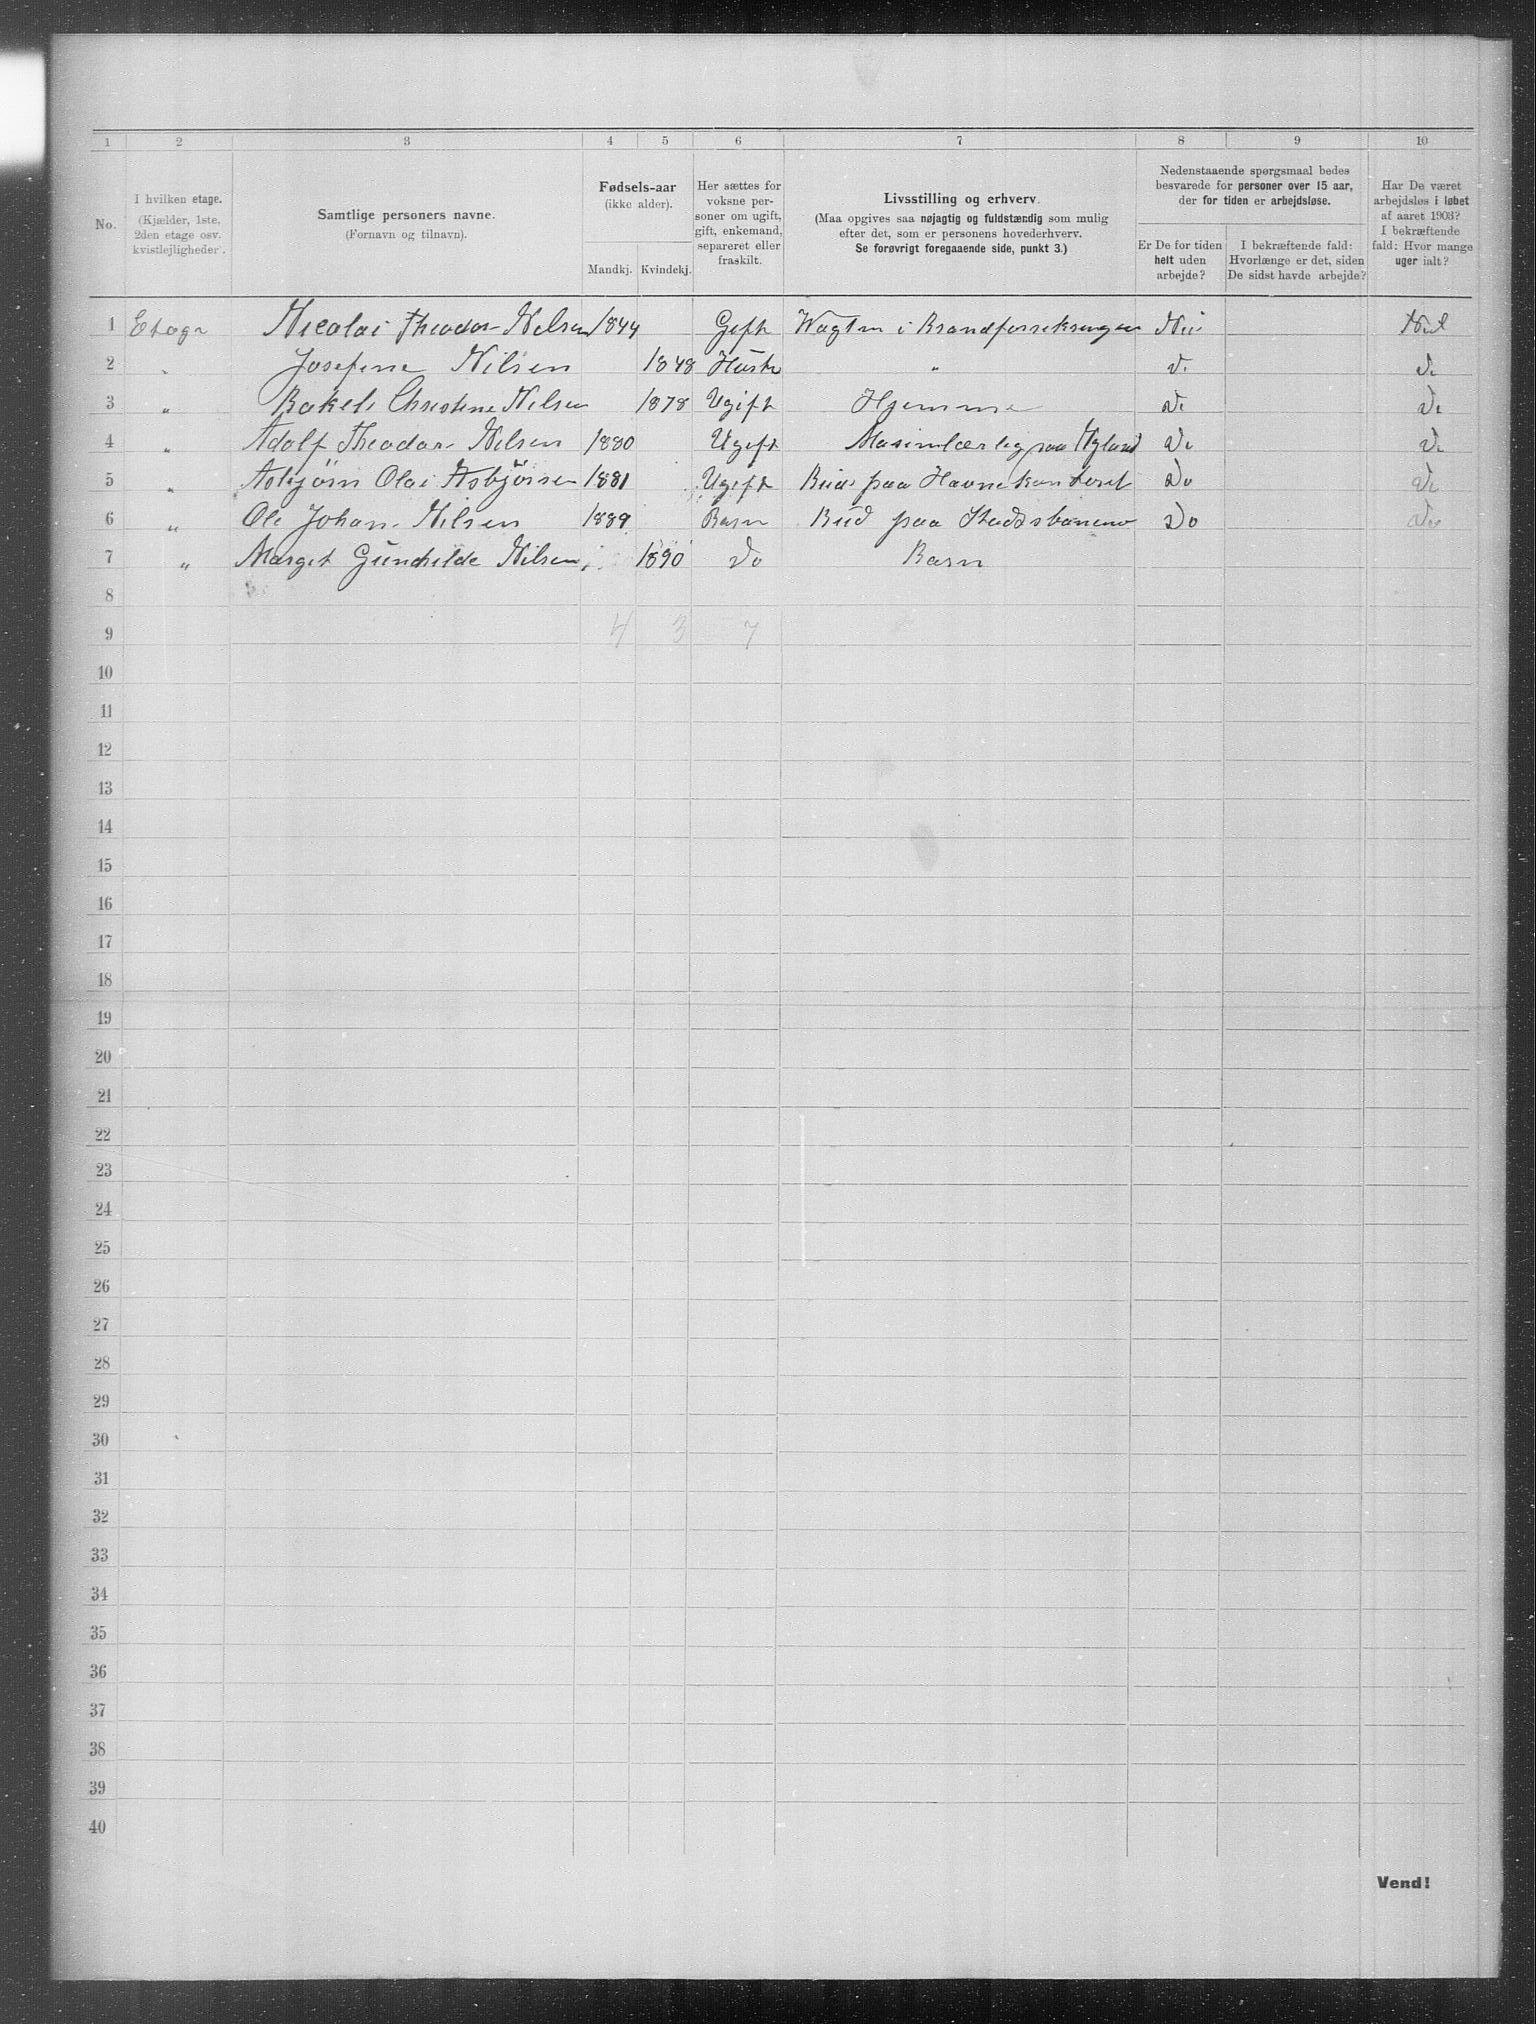 1 2 3 4 5 6 7 8 9 10
No.
I hvilken etage.
(Kjælder, 1ste,
2den etage osv.
kvistlejligheder).
Samtlige personers navne.
(Fornavn og tilnavn).
Fødsels-aar
(ikke alder).
Mandkj. Kvindekj.
Her sættes for
voksne per-
soner om ugift,
gift, enkemand,
separeret eller
fraskilt.
Livsstilling og erhverv.
(Maa opgives saa nøjagtig og fuldstændig som mulig
efter det, som er personens hovederhverv.
Se forøvrigt foregaaende side, punkt 3.)
Nedenstaaende spørgsmaal bedes
besvarede for personer over 15 aar,
der for tiden er arbejdsløse.
Er De for tiden
helt uden
arbejde?
I bekræftende fald:
Hvorlænge er det, siden
De sidst havde arbejde?
Har De været
arbejdsløs i løbet
af aaret 1903?
I bekræftende
fald: Hvor mange
uger ialt?
1 Etage Nicolai Theodor Nilsen 1844 Gift i Nei
2 Josefine Nilsen 1848 Hustr " Do Do
3 " Rakel Christine Nilsen 1878 Ugift Hjemme Do Do
4 " Adolf Theodor Nilsen 1880 Ugift Do Do
5 " Asbjørn Olai Asbjörnsen 1881 Ugift Bud paa Havnekontoret Do Do
6 " Ole Johan Nilsen 1889 Barn Bud paa Do Do
7 " Marget Gunhilde Nilsen 1890 Do Barn
8
9 4 3 7
10
11
12
13
14
15
16
17
18
19
20
21
22
23
24
25
26
27
28
29
30
31
32
33
34
35
36
37
38
39
40
Vend!